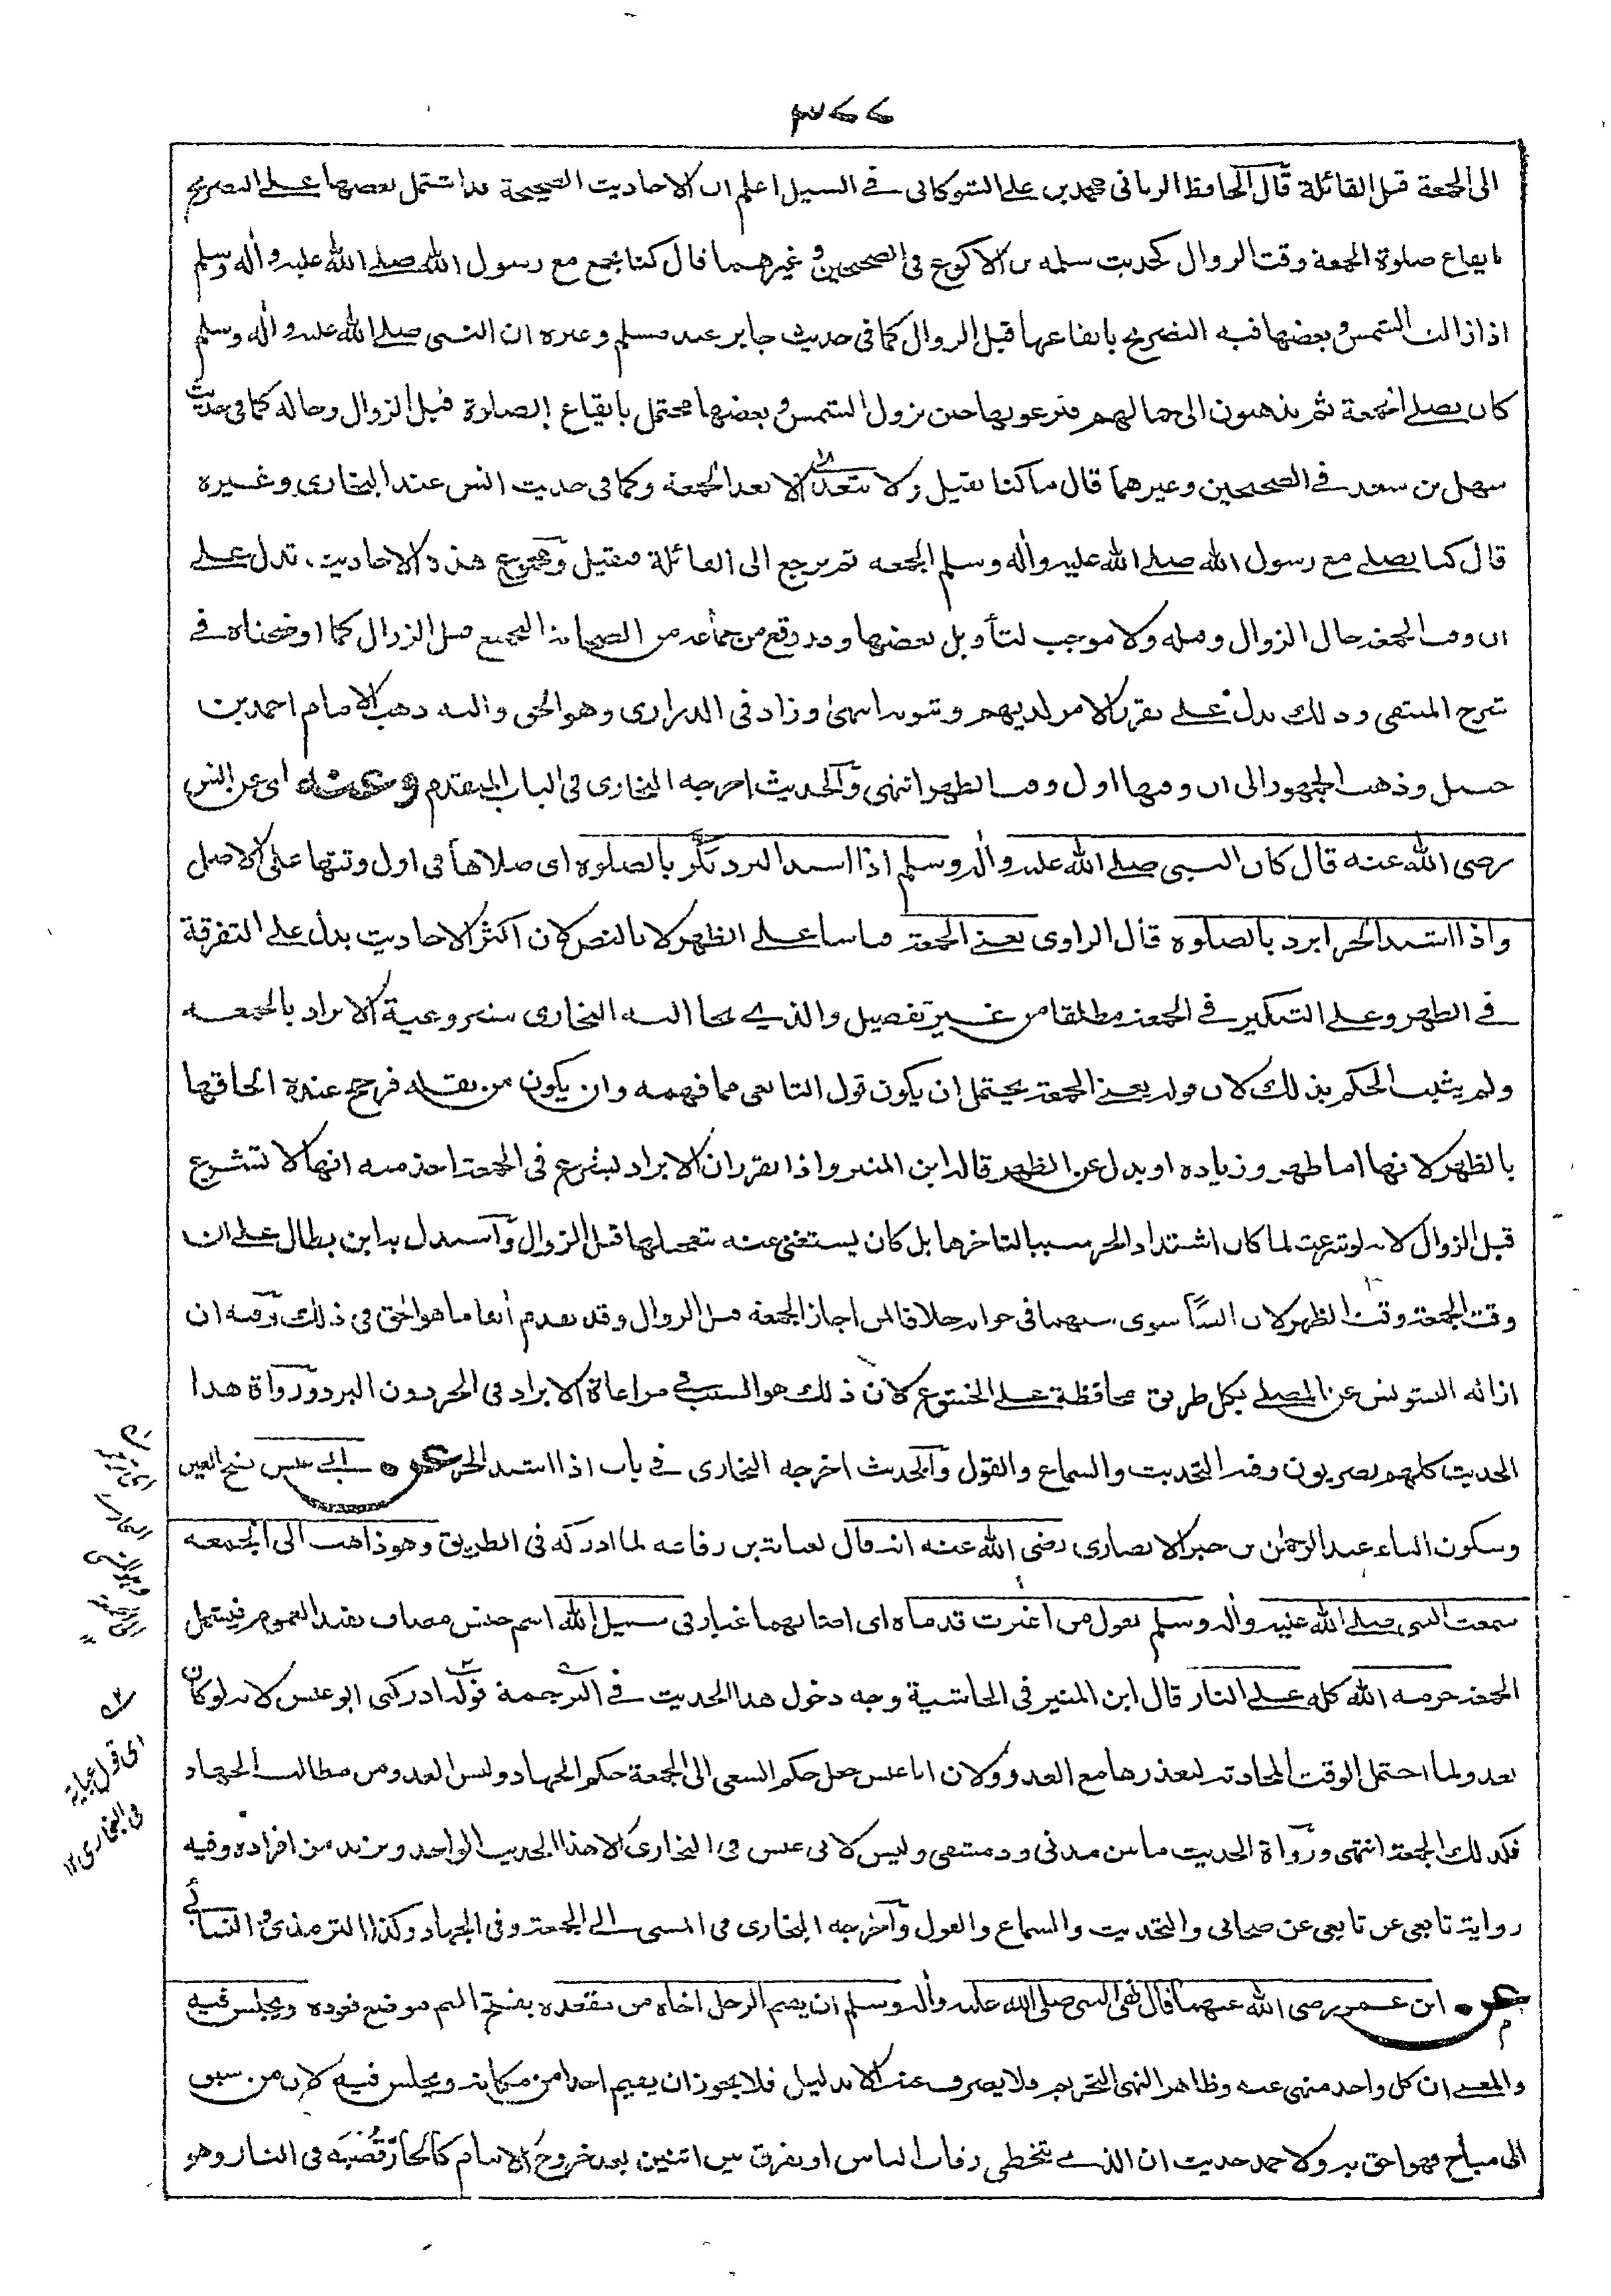 ٣٧٧
الى الجمعة قبل القائلة قال الحافظ الربانى محمد بن على الشوكانى فى السيل اعلم ان الاحاديث الصحيحة قد اشتمل بعضها على التصريح
بايقاع صلوة الجمعة وقت الزوال كحديث سلمه بن الاكوع فى الصحيحين وغيرهما قال كنا نجمع مع رسول الله صلى الله عليه واله وسلم
اذا زالت الشمس وبعضها فيه التصريح بايقاعها قبل الزوال كما فى حديث جابر عند مسلم وغيره ان النبى صلى الله عليه واله وسلم
كان يصلى الجمعة ثم يذهبون الى جمالهم فيريحونها حين تزول الشمس وبعضها محتمل بايقاع الصلوة قبل الزوال وحاله كما فى حديث
سهل بن سعد فى الصحيحين وغيرهما قال ما كنا نقيل ولا نتغدى الا بعد الجمعة وكما فى حديث انس عند البخارى وغيره
قال كنا نصلى مع رسول الله صلى الله عليه واله وسلم الجمعه ثم نرجع الى القائلة فنقيل ومجموع هذه الاحاديث تدل على
ان وقت الجمعة حال الزوال وقبله ولا موجب لتأويل بعضها وقد وقع من جماعة من الصحابة التجميع قبل الزوال كما اوضحناه فى
شرح المنتقى وذلك يدل على تقرر الامر لديهم وثبوته انتهى وزاد فى الدرارى وهو الحق واليه ذهب الامام احمد بن
حنبل وذهب الجمهور الى ان وقتها اول وقت الظهر انتهى والحديث اخرجه البخارى فى الباب المتقدم وعنه اى عن انس
رضى الله عنه قال كان النبى صلى الله عليه واله وسلم اذا اشتد البرد بكر بالصلوة اى صلاها فى اول وقتها على الاصل
واذا اشتد الحر ابرد بالصلوة قال الراوى يعنى الجمعة قياسا على الظهر لا بالنص لان اكثر الاحاديث يدل على التفرقة
فى الظهر وعلى التبكير فى الجمعة مطلقا من غير تفصيل والذى نحا اليه البخارى مشروعية الابراد بالجمعه
ولم يثبت الحكم بذلك لان قوله يعنى الجمعة يحتمل ان يكون قول التابعى مما فهمه وان يكون من نقله فرجح عنده الحاقها
بالظهر لانها اما ظهر وزياده او بدل عن الظهر قاله ابن المنير واذا تقرر ان الابراد يشرع فى الجمعة اخذ منه انها لا تشرع
قبل الزوال لانه لو شرعت لما كان اشتداد الحر سببا لتاخرها بل كان يستغنى عنه بتعجيلها قبل الزوال واستدل به ابن بطال على ان
وقت الجمعة وقت الظهر لان انسًا سوى بينهما فى جوابه خلافا لمن اجاز الجمعة قبل الزوال وقد تقدم انفا ما هو الحق فى ذلك وفيه ان
ازالة التشويش عن المصلى بكل طريق محافظة على الخشوع لان ذلك هو السبب فى مراعاة الابراد فى الحر دون البرد ورواة هذا
الحديث كلهم بصريون وفيه التحديث والسماع والقول والحديث اخرجه البخارى فى باب اذا اشتد الحر عن ابى عبس بفتح العين
وسكون الباء عبد الرحمٰن بن جبر الانصارى رضى الله عنه انه قال لعباية بن رفاعه لما ادركه فى الطريق وهو ذاهب الى الجمعه
سمعت النبى صلى الله عليه واله وسلم يقول من اغبرت قدماه اى اصابهما غبار فى سبيل الله اسم جنس مضاف يفيد العموم فيشمل
الجمعة حرمه الله كله على النار قال ابن المنير فى الحاشية وجه دخول هذا الحديث فى الترجمة قوله ادركنى ابو عبس لانه لو كان
يعدو لما احتمل الوقت المحادثه لتعذرها مع العدو ولان ابا عبس جعل حكم السعى الى الجمعة حكم الجهاد وليس العدو من مطالب الجهاد
فكذلك الجمعة انتهى ورواة الحديث ما بين مدنى ودمشقى وليس لابى عبس فى البخارى الا هذا الحديث الواحد ويزيد من افراده وفيه
رواية تابعى عن تابعى عن صحابى والتحديث والسماع والقول واخرجه البخارى فى المشى الى الجمعة وفى الجهاد وكذا الترمذى والنسائى
عن ابن عمر رضى الله عنهما قال نهى النبى صلى الله عليه واله وسلم ان يقيم الرجل اخاه من مقعده بفتح الميم موضع قعوده ويجلس فيه
والمعنى ان كل واحد منهى عنه وظاهر النهى التحريم ولا يصرف عنه الا بدليل فلا يجوز ان يقيم احدا من مكانه ويجلس فيه لان من سبق
الى مباح فهو احق به ولاحمد حديث ان الذى يتخطى رقاب الناس او يفرق بين اثنين بعد خروج الامام كالجار قُصْبَه فى النار وهو
اى قول عباية
فى البخارى ١٢